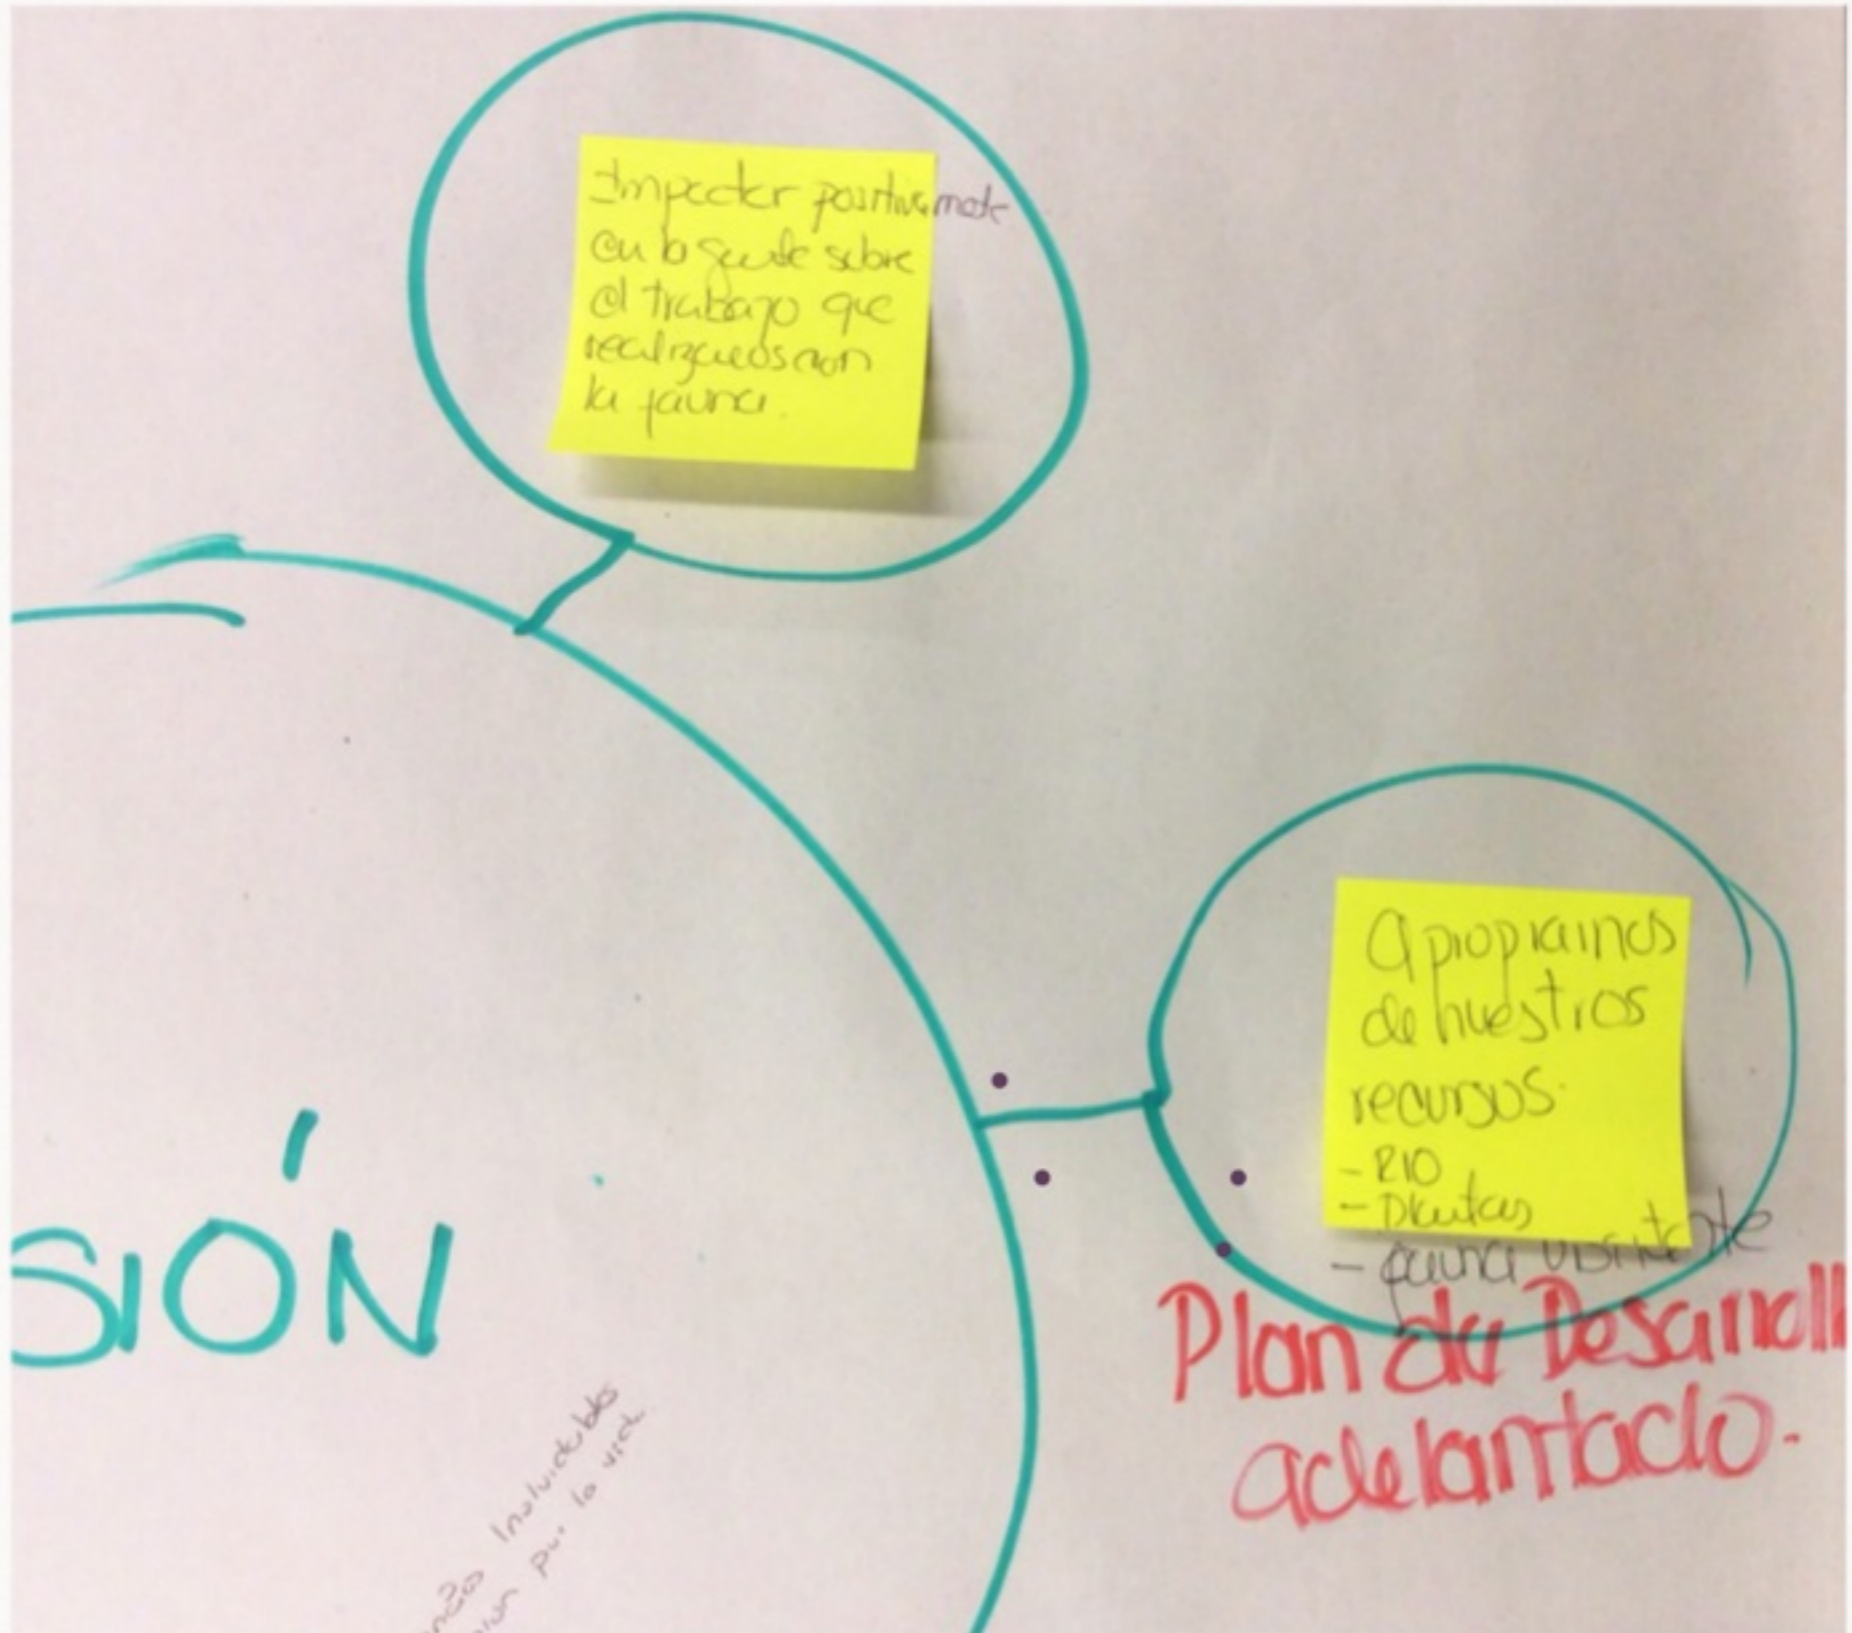 Impactar positivamete
en la gente sobre
el trabajo que
realizamos con
la fauna.
Apropiarnos
de nuestros
recursos.
- RIO
- Plantas
- fauna visitante
Plan de Desarroll
adelantado.
SIÓN
Inolvidables
por la vida